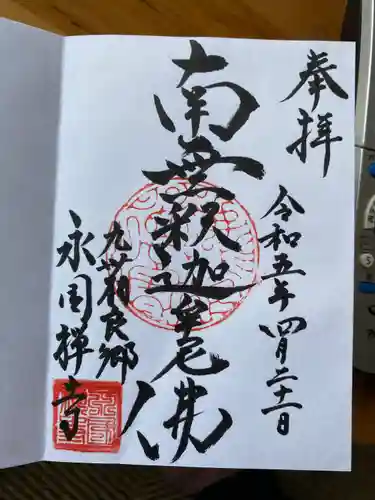 奉拝
令和五年四月二十一日
南無釈迦牟尼佛
相良郷
永国禅寺